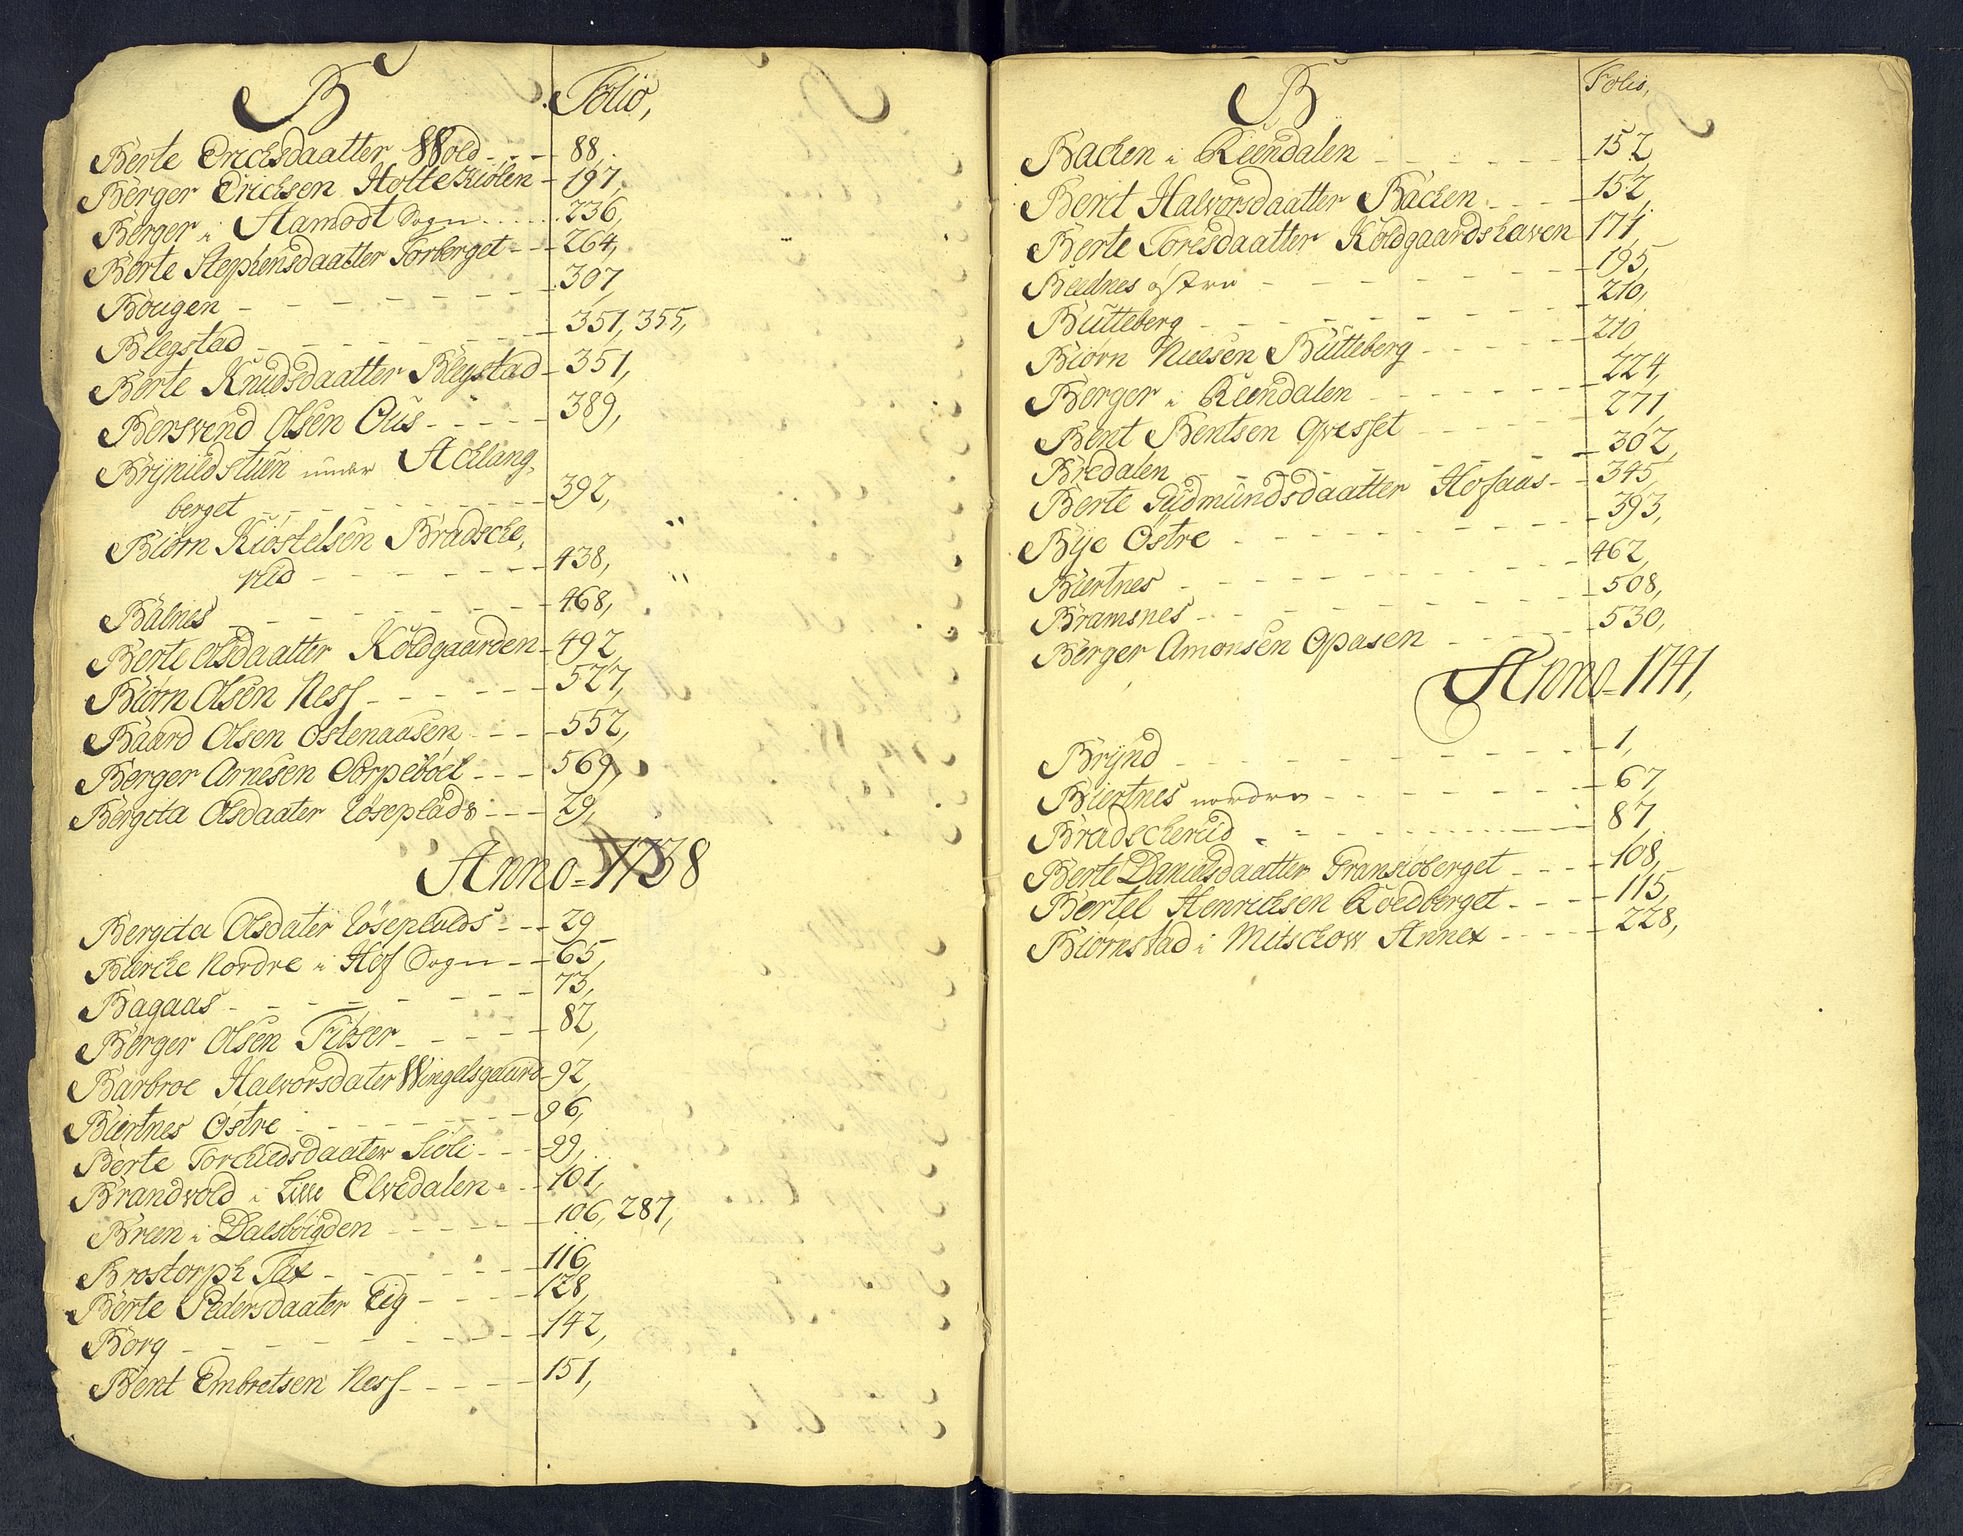 B Folio,
Berte Erichsdaatter Wold - - - 88,
Berger Erichsen Holtekiølen - 197,
Berger i Aamodt Sogn ..... 236,
Berte Stephensdaatter Torberget - - - 264,
Bougen - - - - - - - - 307,
Blegstad - - - - - - - - 351, 355,
Berte Knudsdaatter Blegstad - 351,
Bersvend Olsen Ous - - - - - 389,
Brÿnildstuen under Aschang-
berget - - - - - - - - - 392,
Biørn Kiøstelsen Bradsche-
rud - - - - - - - - 438,
Balnes - - - - - - - - 468,
Berte Olsdaatter Koldgaarden - 492,
Biørn Olsen Ness - - - - - 527,
Baard Olsen Ostenaasen - - - 552,
Berger Arnesen Sorpebøel - - - 569,
Bergita Olsdaater Løseplads - - - 29,
Anno = 1738
Bergita Olsdater Løseplads - - - 29
Bierche Nordre i Hof Sogn - - 65,
Bagaas - - - - - - - 73,
Berger Olsen Tibser - - - - - 82,
Barbroe Halvorsdater Wingelsgaard - 92,
Biertnes Østre - - - - - - - 96,
Berte Torchildsdaater Lioli - - - 99,
Brandvold i Lille Elvedalen - - 101,
Bræn i Dalsbøigden - - - - - 106, 287,
Brostorph Tax - - - - - - 116,
Berte Pedersdaater Eig - - - - 128,
Borg - - - - - - - - 142,
Bent Embretsen Ness - - - - - 151,
B Folio,
Bachen i Reendalen - - - - - - 152,
Berit Halvorsdaatter Bachen - - - - 152,
Berte Toresdaatter Koldgaardshaven 174,
Bednes østre - - - - - 195,
Butteberg - - - - - - - - 210,
Biørn Nielsen Butteberg - - - - - 210,
Berger i Reendalen - - - - - - 224,
Bent Bentsen Qvesset - - - - - 271,
Bredalen - - - - - - - - 302,
Berte Gudmundsdaatter Hofaas - - 345,
Bÿe Østre - - - - - - - - 393,
Biertnes - - - - - - - - 462,
Bramsnes - - - - - - - - 508,
Berger Amonsen Opasen - - - - - 530,
Anno = 1741,
Brÿnd - - - - - - - - 1,
Biertnes nordre - - - - - - - 67,
Bradscherud - - - - - - - 87
Berte Danielsdaatter Transioberget - - - - 108,
Bertel Henrichsen Roedberget - - - - 115,
Biørnstad i Mitschow Annex - - - - - 228,